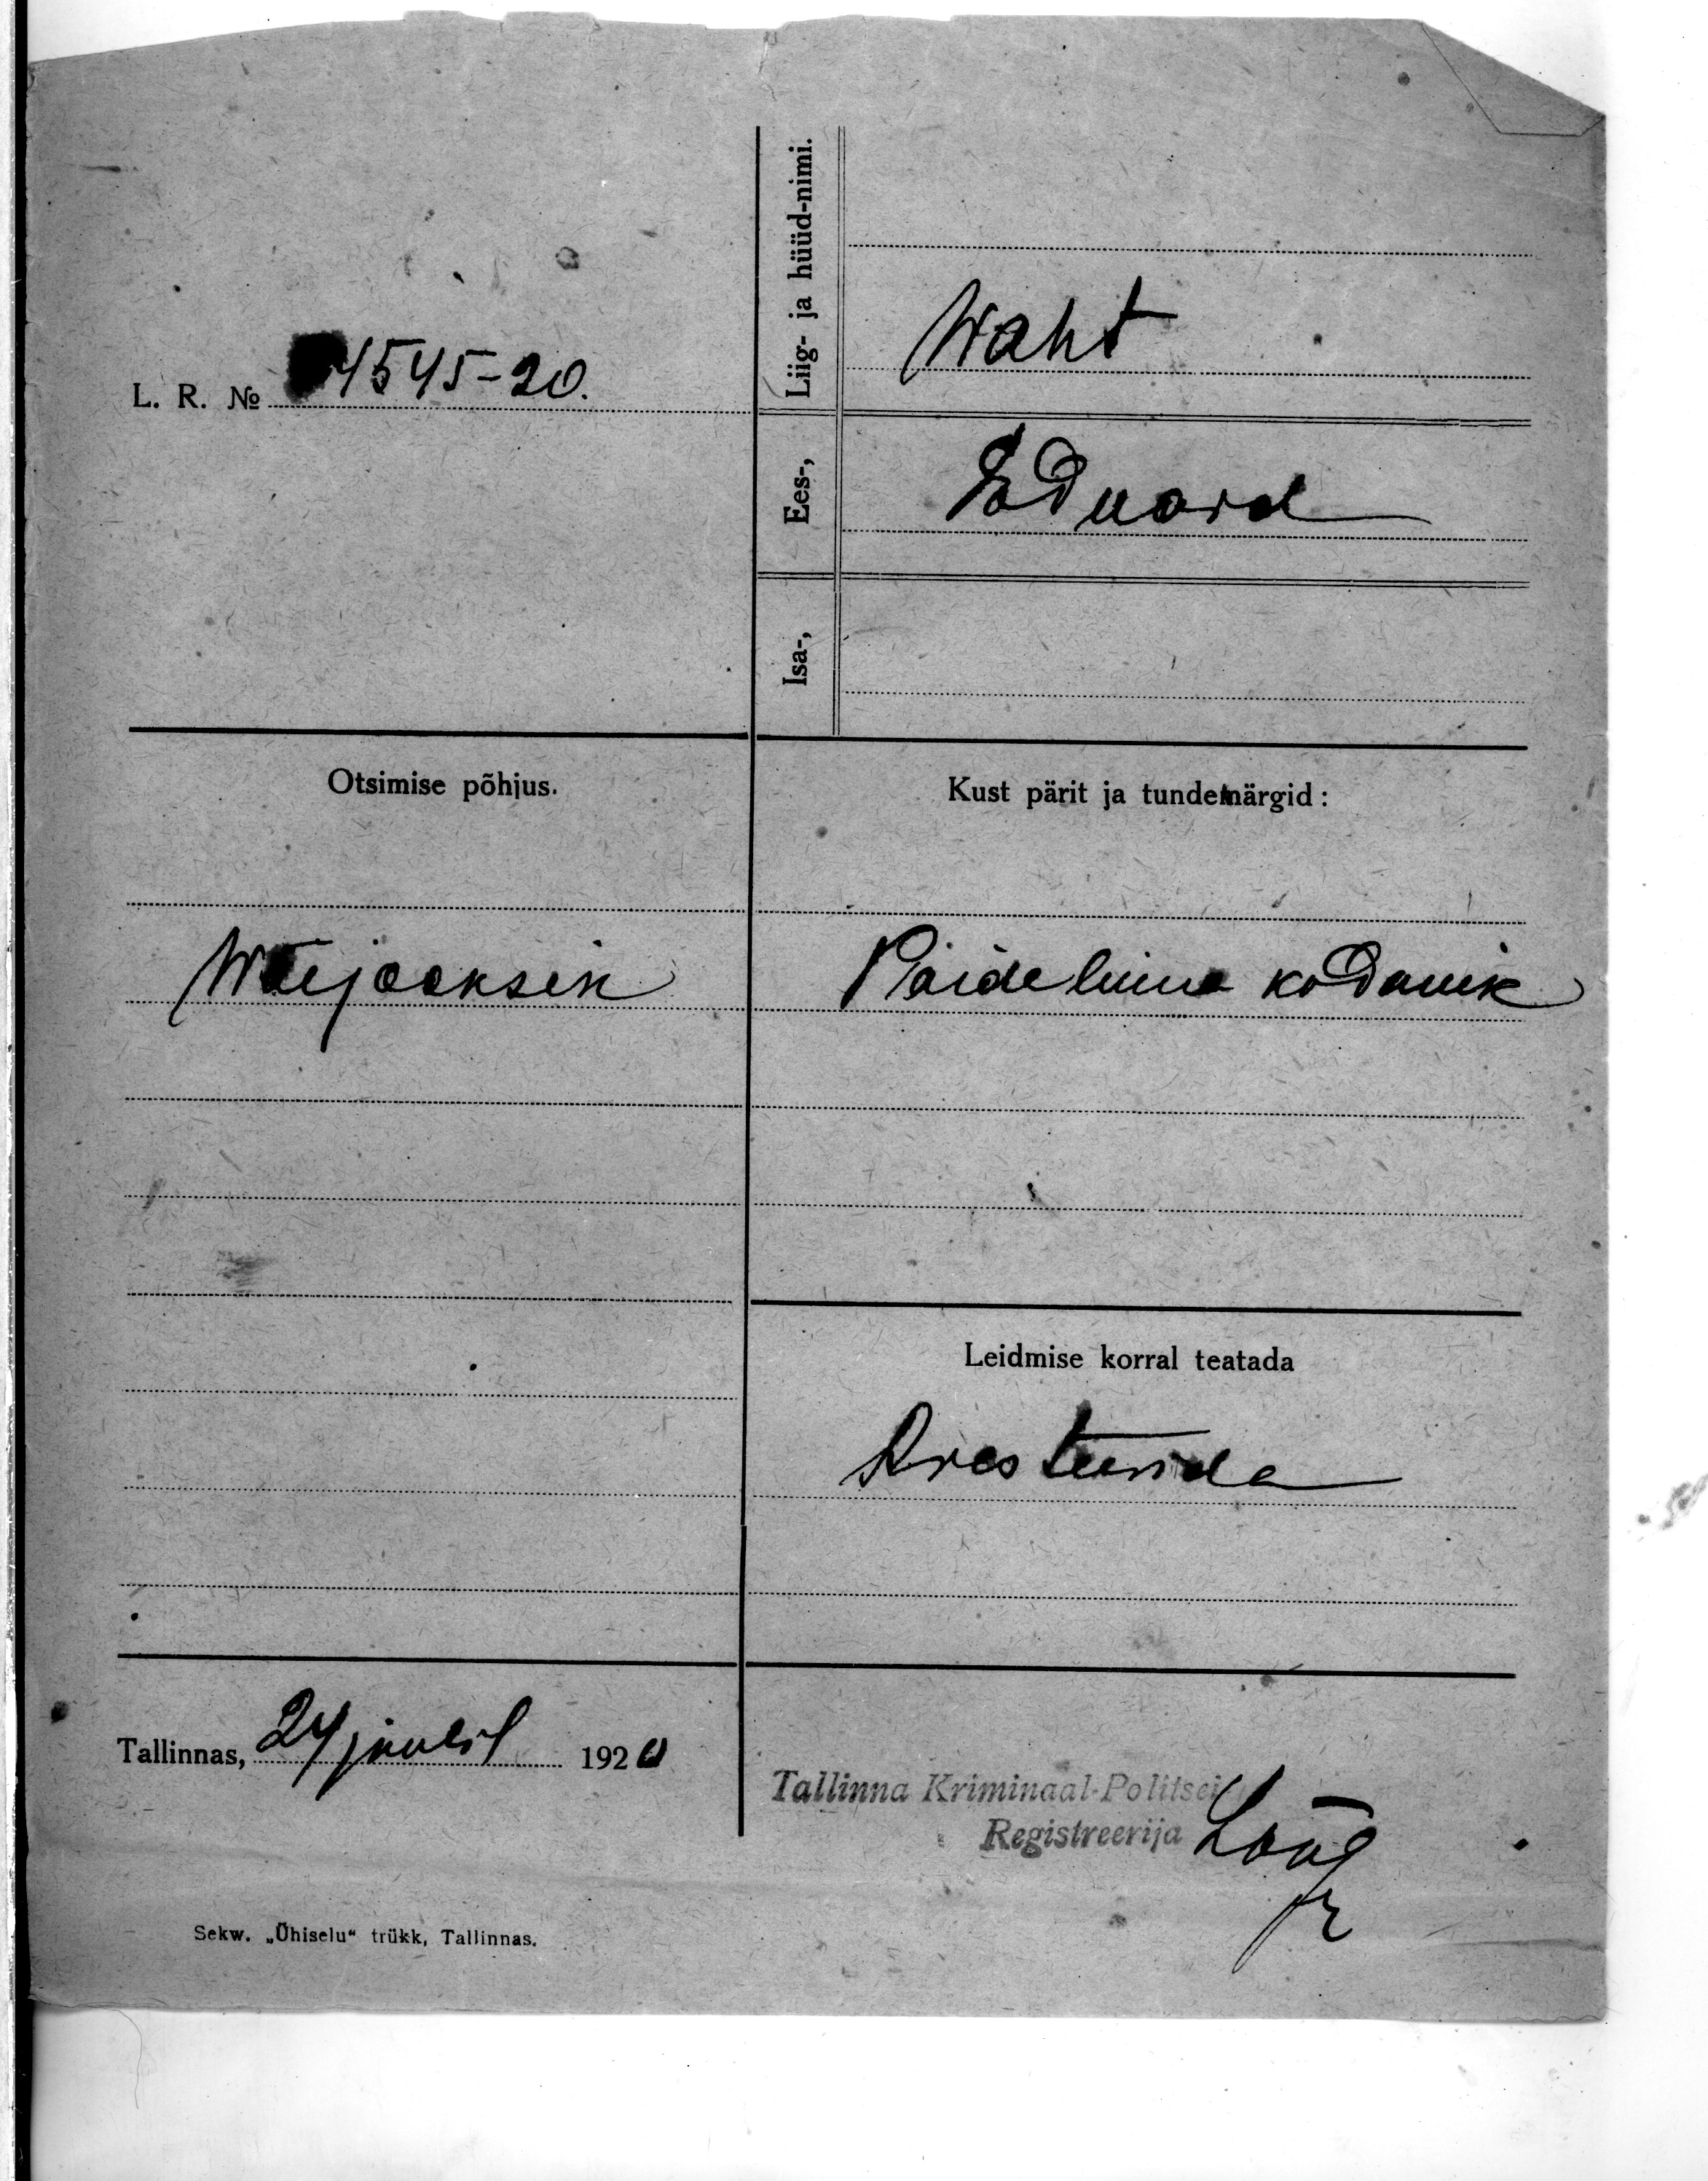 L. R. № 4545-20.
Liig- ja hüüd-nimi.
Waht
Ees-,
Eduard
Isa-,
Otsimise põhjus.
Wäejooksik
Kust pärit ja tundemärgid:
Paide linna kodanik
Leidmise korral teatada
Aresteerida
Tallinnas, 24 juulil 1920
Tallinna Kriminaal-Politsei
Registreerija
Sekw. „Ühiselu“ trükk, Tallinnas.